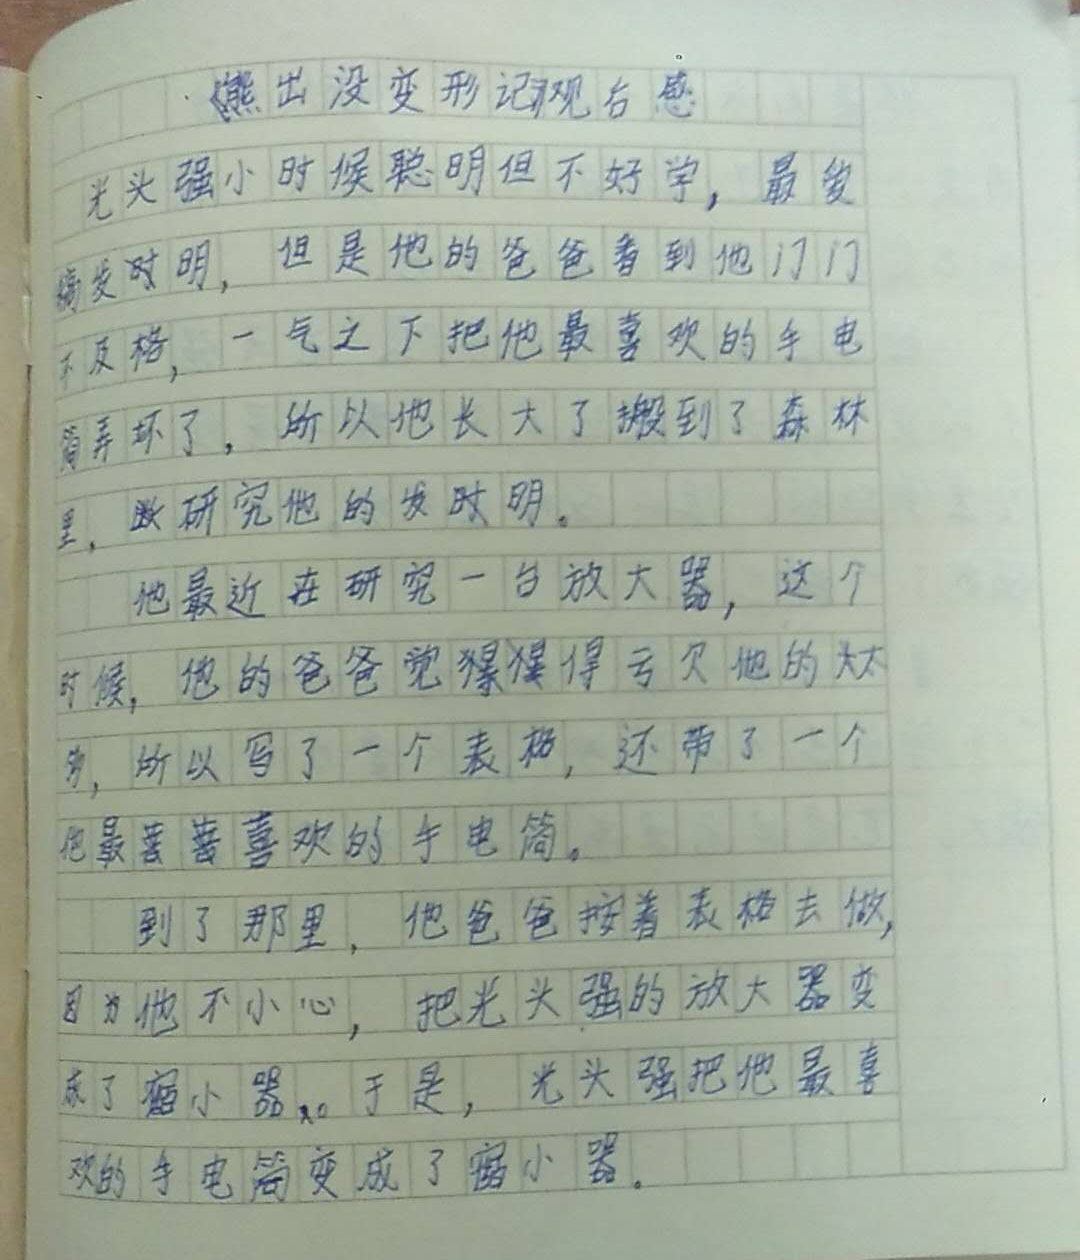 《熊出没变形记》观后感
光头强小时候聪明但不好学，最爱
搞发时明，但是他的爸爸看到他门门
不及格，一气之下把他最喜欢的手电
筒弄坏了，所以他长大了搬到了森林
里，研究他的发时明。
他最近在研究一台放大器，这个
时候，他的爸爸觉得亏欠他的太
多，所以写了一个表格，还带了一个
他最喜欢的手电筒。
到了那里，他爸爸按着表格去做，
因为他不小心，把光头强的放大器变
成了缩小器。于是，光头强把他最喜
欢的手电筒变成了缩小器。